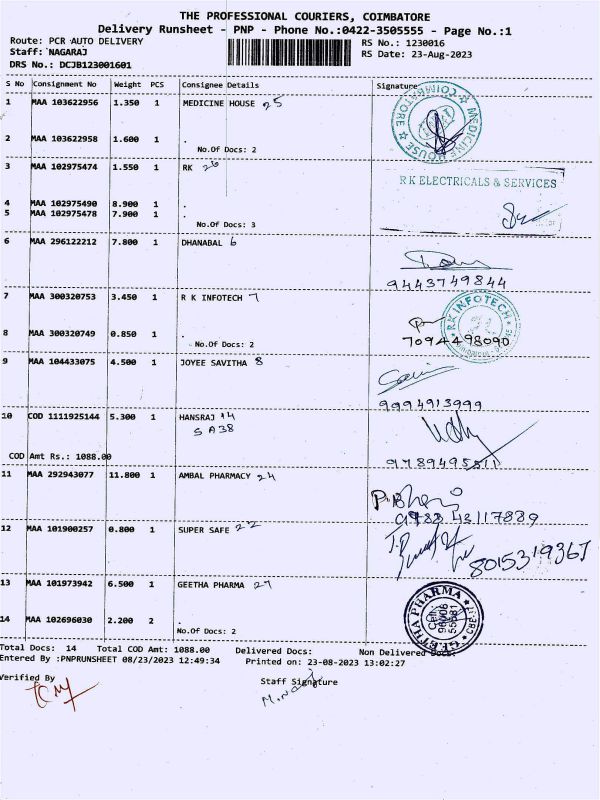 THE PROFESSIONAL COURIERS, COIMBATORE
Delivery Runsheet - PNP - Phone No.:0422-3505555 - Page No.:1
Route: PCR AUTO DELIVERY
RS No.: 1230016
Staff: NAGARAJ
RS Date: 23-Aug-2023
DRS No.: DCJB123001601
S No Consignment No Weight PCS Consignee Details Signature
1 MAA 103622956 1.350 1 MEDICINE HOUSE 25
COIMBATORE MEDICINE HOUSE
2 MAA 103622958 1.600 1 .
No.Of Docs: 2
3 MAA 102975474 1.550 1 RK 26
RK ELECTRICALS & SERVICES
4 MAA 102975490 8.900 1 .
5 MAA 102975478 7.900 1 .
No.Of Docs: 3
6 MAA 296122212 7.800 1 DHANABAL 6
9443749844
7 MAA 300320753 3.450 1 R K INFOTECH 7
RK INFOTECH
8 MAA 300320749 0.850 1 .
No.Of Docs: 2
7094498090
9 MAA 104433075 4.500 1 JOYEE SAVITHA 8
9994913999
10 COD 1111925144 5.300 1 HANSRAJ 14
S A38
COD Amt Rs.: 1088.00
9789495811
11 MAA 292943077 11.800 1 AMBAL PHARMACY 24
12 MAA 101900257 0.800 1 SUPER SAFE 22
8015319367
13 MAA 101973942 6.500 1 GEETHA PHARMA 27
GEETHA PHARMA
14 MAA 102696030 2.200 2 .
No.Of Docs: 2
Total Docs: 14 Total COD Amt: 1088.00 Delivered Docs: Non Delivered Docs:
Entered By :PNPRUNSHEET 08/23/2023 12:49:34 Printed on: 23-08-2023 13:02:27
Verified By
Staff Signature